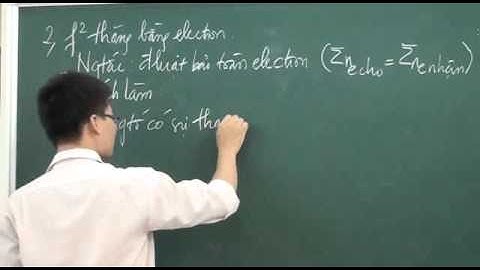 2, f² thăng bằng electron.
Ngtắc đ luật bảo toàn electron (Σn e cho = Σn e nhận)
ch làm
ngtố có sự tha